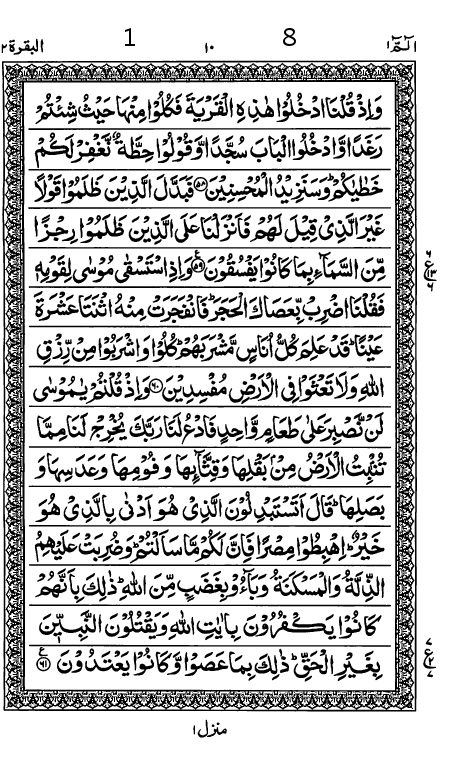 البقرة ٢ 1 ١٠ 8 الٓمّٓ ١
وَاِذْ قُلْنَا ادْخُلُوْا هٰذِهِ الْقَرْيَةَ فَكُلُوْا مِنْهَا حَيْثُ شِئْتُمْ
رَغَدًا وَّادْخُلُوا الْبَابَ سُجَّدًا وَّقُوْلُوْا حِطَّةٌ نَّغْفِرْ لَكُمْ
خَطٰيٰكُمْ ؕ وَسَنَزِيْدُ الْمُحْسِنِيْنَ ﴿۵۸﴾ فَبَدَّلَ الَّذِيْنَ ظَلَمُوْا قَوْلًا
غَيْرَ الَّذِيْ قِيْلَ لَهُمْ فَاَنْزَلْنَا عَلَى الَّذِيْنَ ظَلَمُوْا رِجْزًا
مِّنَ السَّمَآءِ بِمَا كَانُوْا يَفْسُقُوْنَ ﴿۵۹﴾ وَاِذِ اسْتَسْقٰى مُوْسٰى لِقَوْمِهٖ
فَقُلْنَا اضْرِبْ بِّعَصَاكَ الْحَجَرَ ؕ فَانْفَجَرَتْ مِنْهُ اثْنَتَا عَشْرَةَ
عَيْنًا ؕ قَدْ عَلِمَ كُلُّ اُنَاسٍ مَّشْرَبَهُمْ ؕ كُلُوْا وَاشْرَبُوْا مِنْ رِّزْقِ
اللّٰهِ وَلَا تَعْثَوْا فِى الْاَرْضِ مُفْسِدِيْنَ ﴿۶۰﴾ وَاِذْ قُلْتُمْ يٰمُوْسٰى
لَنْ نَّصْبِرَ عَلٰى طَعَامٍ وَّاحِدٍ فَادْعُ لَنَا رَبَّكَ يُخْرِجْ لَنَا مِمَّا
تُنْۢبِتُ الْاَرْضُ مِنْۢ بَقْلِهَا وَقِثَّآئِهَا وَفُوْمِهَا وَعَدَسِهَا وَ
بَصَلِهَا ؕ قَالَ اَتَسْتَبْدِلُوْنَ الَّذِيْ هُوَ اَدْنٰى بِالَّذِيْ هُوَ
خَيْرٌ ؕ اِهْبِطُوْا مِصْرًا فَاِنَّ لَكُمْ مَّا سَاَلْتُمْ ؕ وَضُرِبَتْ عَلَيْهِمُ
الذِّلَّةُ وَالْمَسْكَنَةُ وَبَآءُوْ بِغَضَبٍ مِّنَ اللّٰهِ ؕ ذٰلِكَ بِاَنَّهُمْ
كَانُوْا يَكْفُرُوْنَ بِاٰيٰتِ اللّٰهِ وَيَقْتُلُوْنَ النَّبِيّٖنَ
بِغَيْرِ الْحَقِّ ؕ ذٰلِكَ بِمَا عَصَوْا وَّكَانُوْا يَعْتَدُوْنَ ﴿۶۱﴾
منزل ١